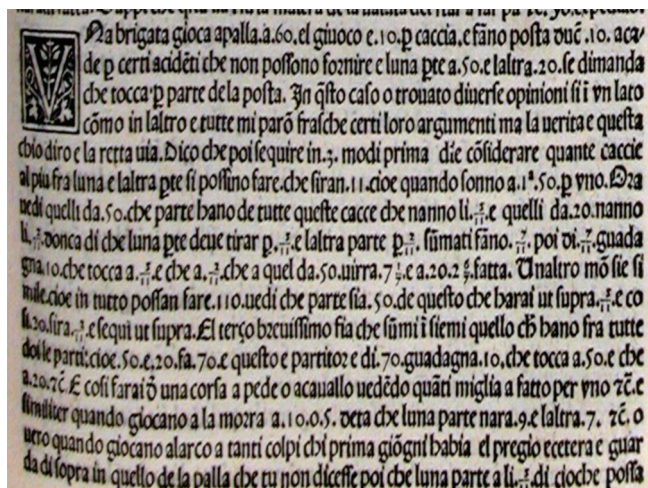 VNa brigata gioca apalla.a.60.el giuoco e.10.ꝑ caccia.e fãno posta duc̃.10. aca/
de ꝑ certi acidẽti che non possono fornire e luna ꝑte a.50.e laltra.20.se dimanda
che tocca ꝑ parte de la posta. In q̃sto caso o trouato diuerse opinioni si ĩ vn lato
cõmo in laltro e tutte mi parõ frasche certi loro argumenti ma la uerita e questa
chio diro e la retta uia. Dico che poi sequire in.3. modi prima die cõsiderare quante caccie
al piu fra luna e laltra ꝑte si possino fare.che siran.11.cioe quando sonno a.1ª.50.ꝑ vno. Ora
uedi quelli da.50.che parte hano de tutte queste cacce che nanno li.5/11.e quelli da.20.nanno
li.2/11.donca di che luna ꝑte deue tirar ꝑ.5/11.e laltra parte ꝑ 2/11. sũmati fãno.7/11. poi di.7/11.guada
gna.10.che tocca a.5/11.e che a.2/11.che a quel da.50.uirra.7 1/7.e a.20.2 6/7.fatta. Unaltro mõ sie si
mile.cioe in tutto possan fare.110.uedi che parte sia.50.de questo che harai ut supra.5/11.e co
si.20.sira.2/11.e sequi ut supra. El terço breuissimo sia che sũmi ĩsiemi quello ch̃ hano fra tutte
doi le parti:cioe.50.e.20.fa.70.e questo e partitore di.70.guadagna.10.che tocca a.50.e che
a.20.⁊c̃. E cosi farai d̃ una corsa a pede o acauallo uedẽdo quãti miglia a fatto per vno ⁊c̃.e
similiter quando giocano a la morra a.10.o.5. deta che luna parte nara.9.e laltra.7. ⁊c̃. o
uero quando giocano alarco a tanti colpi chi prima giõgni habia el pregio ecetera e guar
da di sopra in quello de la palla che tu non dicesse poi che luna parte a li.5/11.di cioche possa